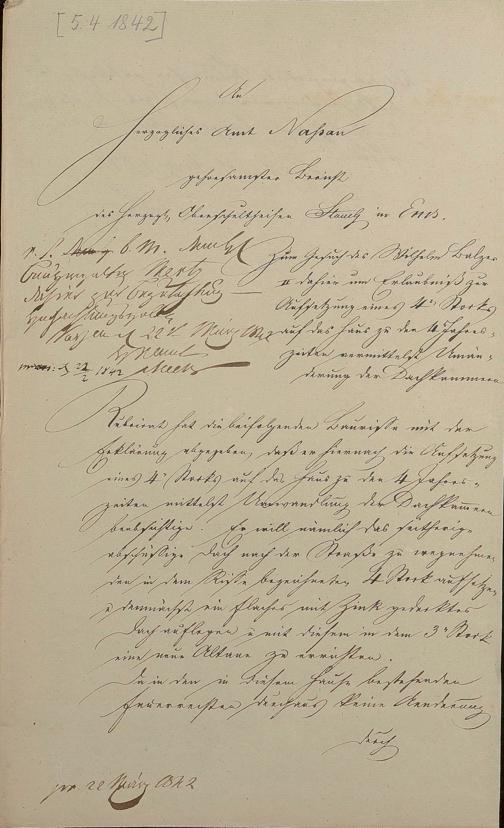 [5.4 1842]
An
Herzogliches Amt Nassau
gehorsamster Bericht
des Herzogl. Oberschultheisen in Ems.
Zum Gesuch des Wilhelm Balzer
II dahier um Erlaubniß zur
Aufsetzung eines 4n Stocks
auf das Haus zu den 4 Jahres-
zeiten vermittelst Umän-
derung der Dachkammern
22t März
1842
Rubricat hat die beifolgenden Baurisse mit der
Erklärung abgegeben, daß er hiernach die Aufsetzung
eines 4n Stocks auf das Haus zu den 4 Jahres-
zeiten mittelst Umwandlung der Dachkammern
beabsichtige. Er will nämlich das seitherige
abschüssige Dach nach der Straße zu wegnehmen
den in dem Risse bezeichneten 4 Stock aufsetzen
u demnächst ein flaches mit Zink gedecktes
Dach auflegen u mit diesem in dem 3n Stock
eine neue Altane zu errichten.
Da in den in diesem Hause bestehenden
Feuerrechten durchaus keine Aenderung
durch
pr 22 März 1842